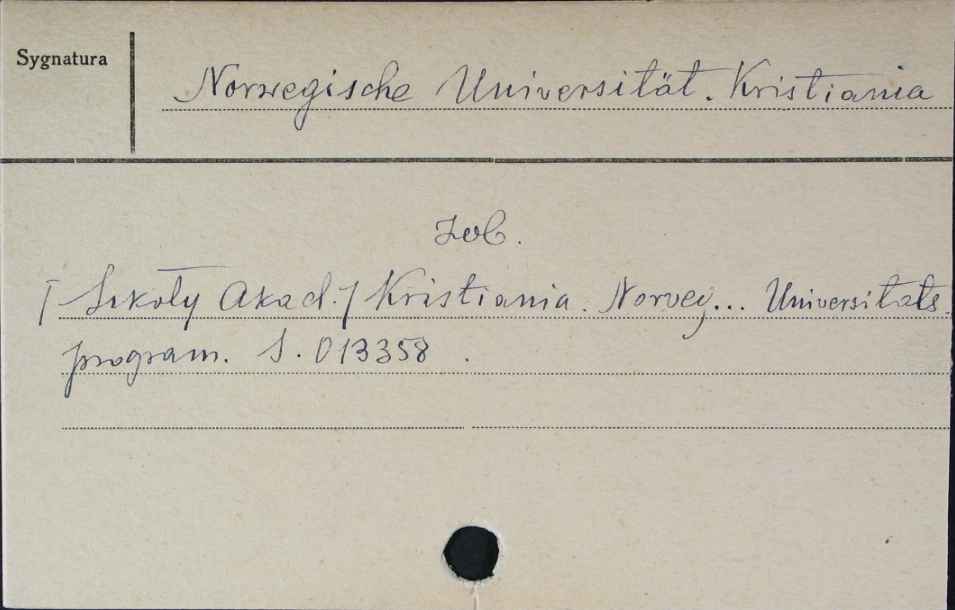 Sygnatura
Norwegische Universität. Kristiania
Zob.
[Szkoły Akad.] Kristiania. Norveg... Universitats
program. S. 013358.